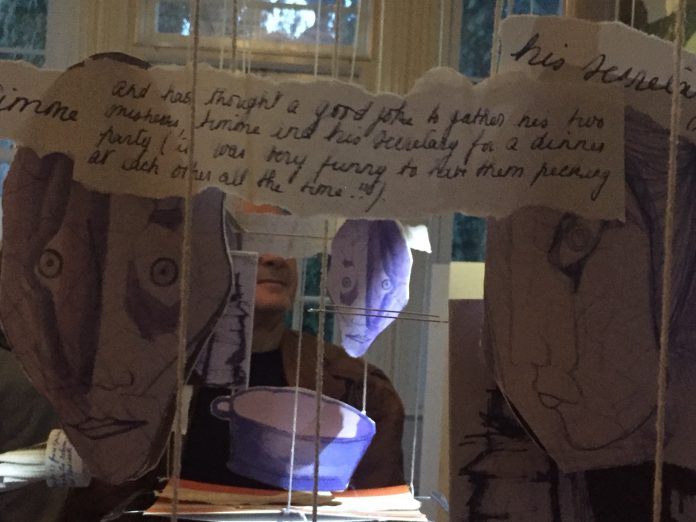 his secreta
Simone
and has thought a good joke to gather his two
mistress Simone and his secretary for a dinner
party ('it was very funny to have them pecking
at each other all the time!!!').